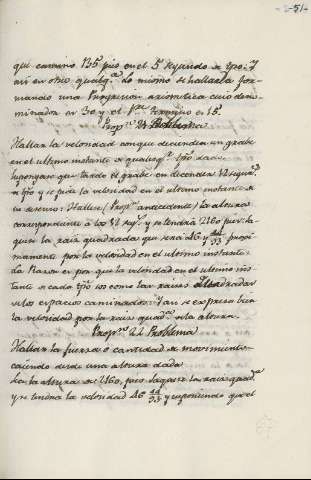 -251-
que camino 135 pies en el 5º segundo de tpo. Y
asi en otro qualqª lo mismo se hallara for-
mando una Progresion arismetica cuio deno-
minador es 30 y el primer termino es 15.
Propⁿ 21 Problema
Hallar la velocidad con que deciende un grabe
en el ultimo instante de qualesqª tpo dado.
Supongase que tarde el grabe en decender 12 segundˢ
de tpo y se pide la velocidad en el ultimo instante de
su descenso: Hallese (Propⁿ antecedente) la altura
correspondiente a los 12 segˢ y se tendra 2160 pies. Sa-
quese la raiz quadrada que sera 46 y 44/93 proxi-
mamente por la velocidad en el ultimo instante:
la Razon es por que la velocidad en el ultimo ins-
tante de cada tpo es como las raices quadradas
de los espacios caminados: Y asi se expresa bien
la velocidad por la raiz quadª de la altura.
Propⁿ 22 Problema
Hallar la fuerza o cantidad de movimiento
caiendo desde una altura dada
Sea la altura de 2160 pies saquese la raiz quadª
y se tendra la velocidad 46 44/93 y suponiendo que el